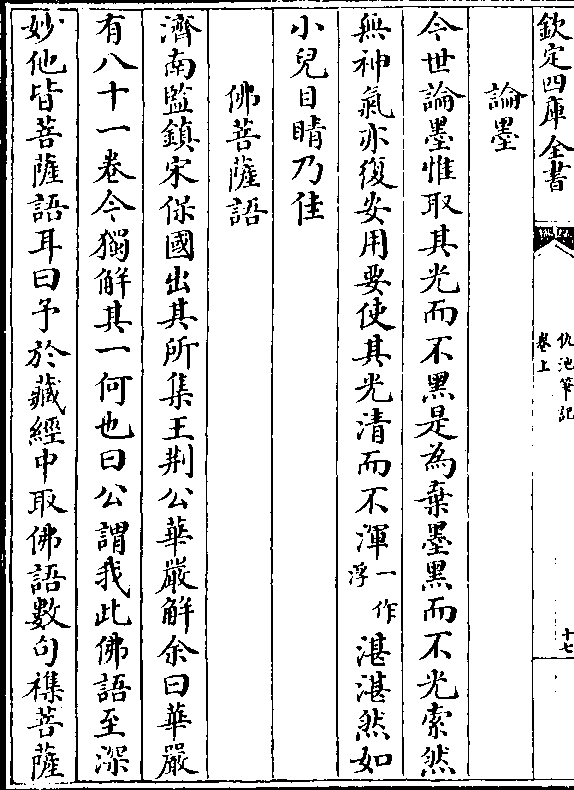 欽定四庫全書
仇池筆記
卷上
十七
論墨
今世論墨惟取其光而不黑是為棄墨黑而不光索然
無神氣亦復安用要使其光清而不渾一作浮湛湛然如
小兒目睛乃佳
佛菩薩語
濟南監鎮宋保國出其所集王荆公華嚴解余曰華嚴
有八十一卷今獨解其一何也曰公謂我此佛語至深
妙他皆菩薩語耳曰予於藏經中取佛語數句襍菩薩